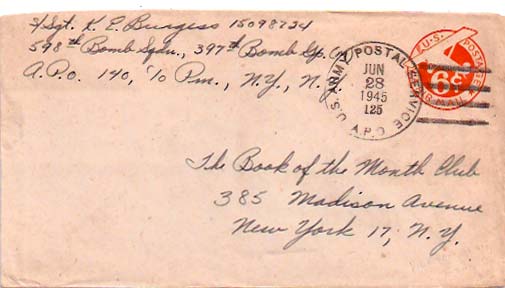 S/Sgt. K E Burgess 15098734
598th Bomb Sqdn., 397th Bomb Gp.
A.P.O. 140, c/o Pm., N.Y., N.Y.
U.S. ARMY POSTAL SERVICE
JUN
28
1945
125
A.P.O.
U.S. POSTAGE
6¢
AIR MAIL
The Book of the Month Club
385 Madison Avenue
New York 17, N.Y.